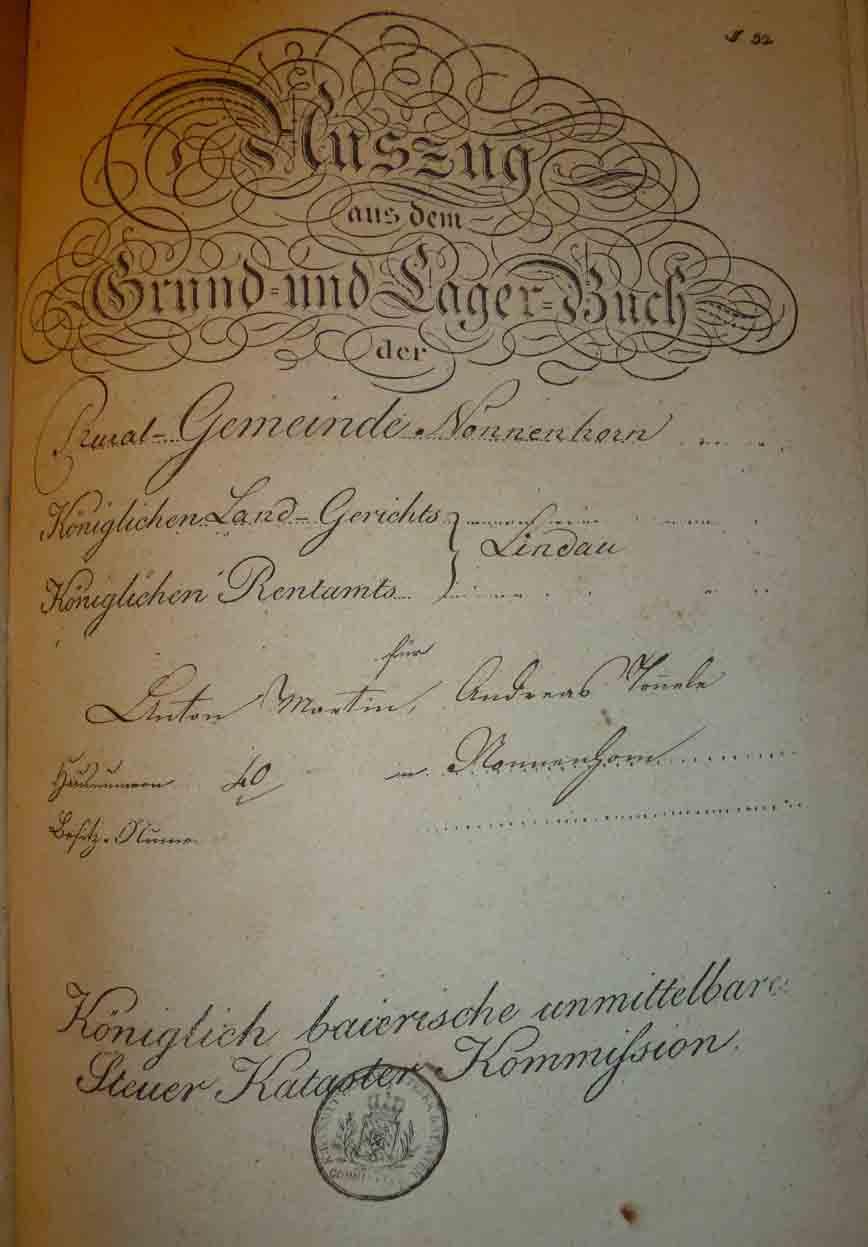 52
Auszug
aus dem
Grund- und Lager-Buch
der
Rural-Gemeinde Nonnenhorn
Königlichen Land-Gerichts
Lindau
Königlichen Rentamts
für
Anton Martin, Andreas
Hausnumero 40 in Nonnenhorn
Besitz-Numro
Königlich baierische unmittelbare
Steuer Kataster Kommißion.